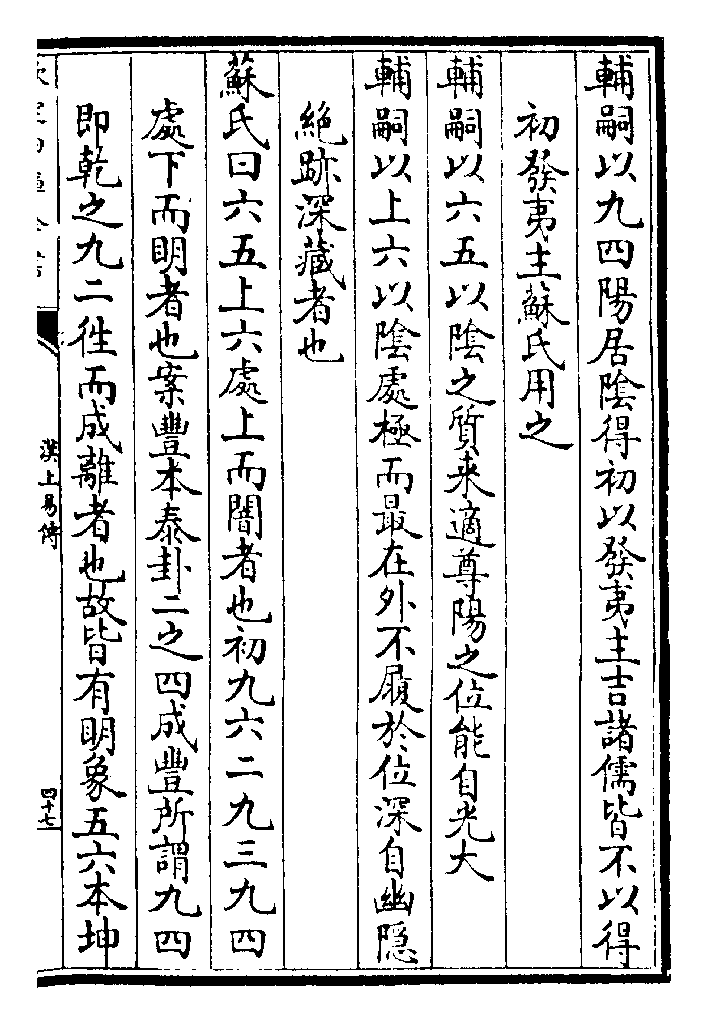 輔嗣以九四陽居陰得初以發夷主吉諸儒皆不以得
初發夷主蘇氏用之
輔嗣以六五以陰之質来適尊陽之位能自光大
輔嗣以上六以陰處極而最在外不履於位深自幽隱
絶跡深藏者也
蘇氏曰六五上六處上而闇者也初九六二九三九四
處下而明者也案豐本泰卦二之四成豐所謂九四
即乾之九二徃而成離者也故皆有明象五六本坤
漢上易傳
四十七